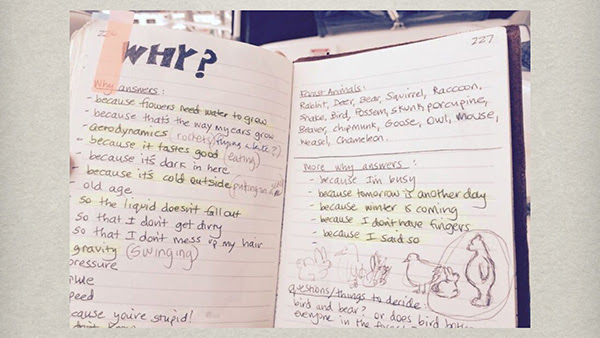 WHY?
Why answers:
- because flowers need water to grow
- because that's the way my ears grow
- aerodynamics (rockets) (flying a
- because it tastes good (eating)
- because it's dark in here
- because it's cold outside (putting on a
- old age
so the liquid doesn't fall out
so that I don't get dirty
so that I don't mess up my hair
gravity (swinging)
pressure
peed
cause you're stupid!
227
Forest Animals:
Rabbit, Deer, Bear, Squirrel, Raccoon,
Snake, Bird, Possem, skunk, porcupine,
Beaver, chipmunk, Goose, Owl, Mouse,
Weasel, Chameleon.
More why answers:
- because I'm busy
- because tomorrow is another day
- because winter is coming
- because I don't have fingers
- because I said so
questions/things to decide:
bird and bear? or does bird
everyone in the